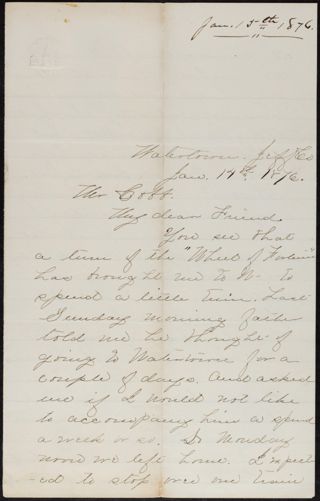 Jan. 15th 1876.
Watertown. Jeff Co
Jan. 14th 1876.
Mr Cobb.
My dear Friend.
You see that
a turn of the "Wheel of Fortune"
has brought me to W- to
spend a little time. Last
Sunday morning Father
told me he thought of
going to Watertown for a
couple of days. and asked
me if I would not like
to accompany him & spend
a week or so. So Monday
noon we left home. I expect
-ed to stop over one train